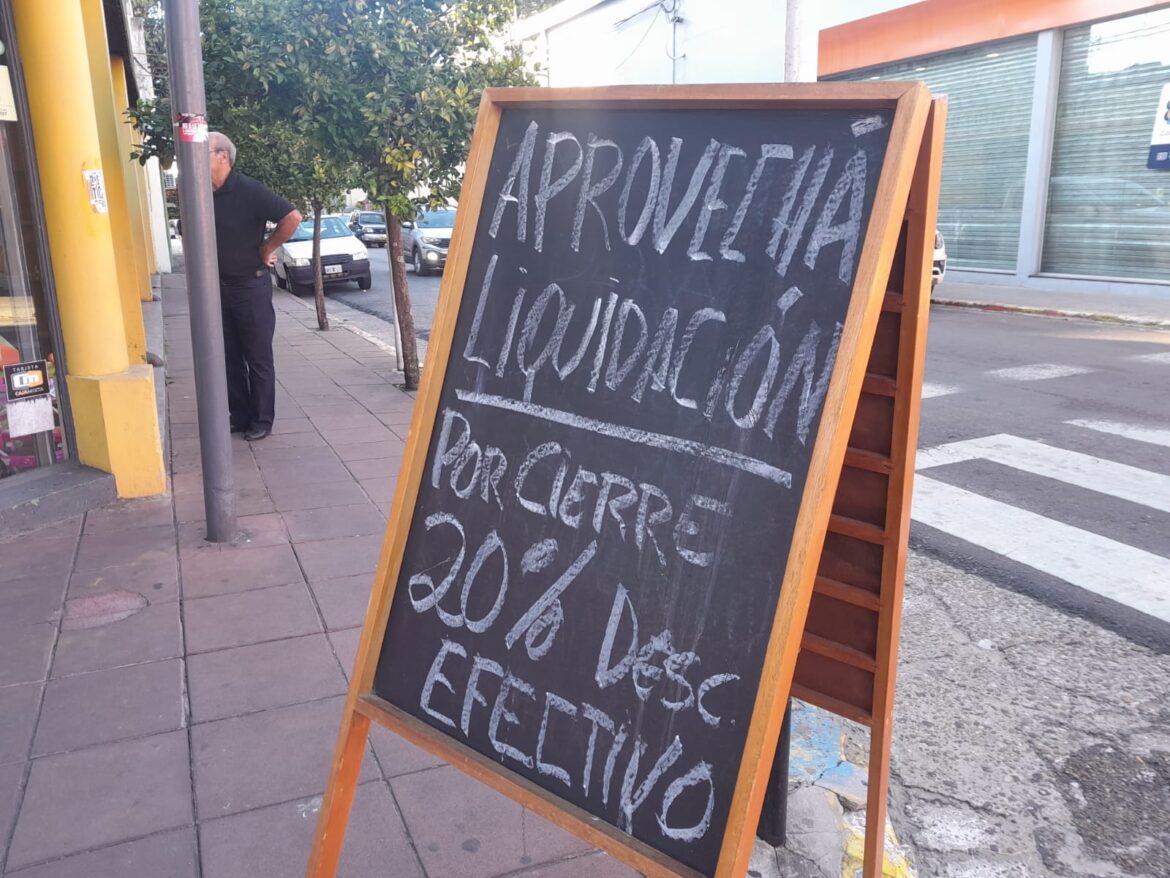 APROVECHA
LIQUIDACIÓN
POR CIERRE
20% DESC.
EFECTIVO
TARJETA